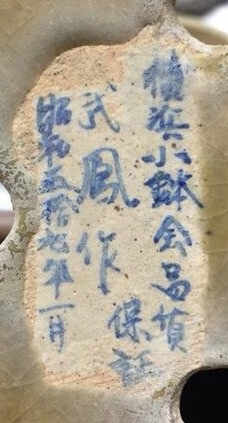 横浜小鉢会品賞
保証
式鳳作
昭和五拾九年一月